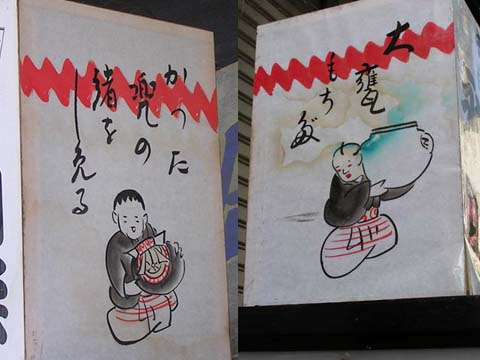 かった
兜の
緒を
しめる
大
甕
もちだ